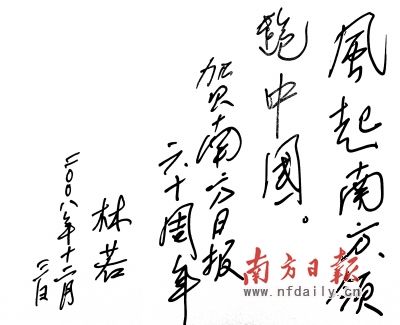 風起南方,領
跑中國。
贺南方日报
六十周年
林若
二〇〇八年十二月
南方日报
www.nfdaily.cn